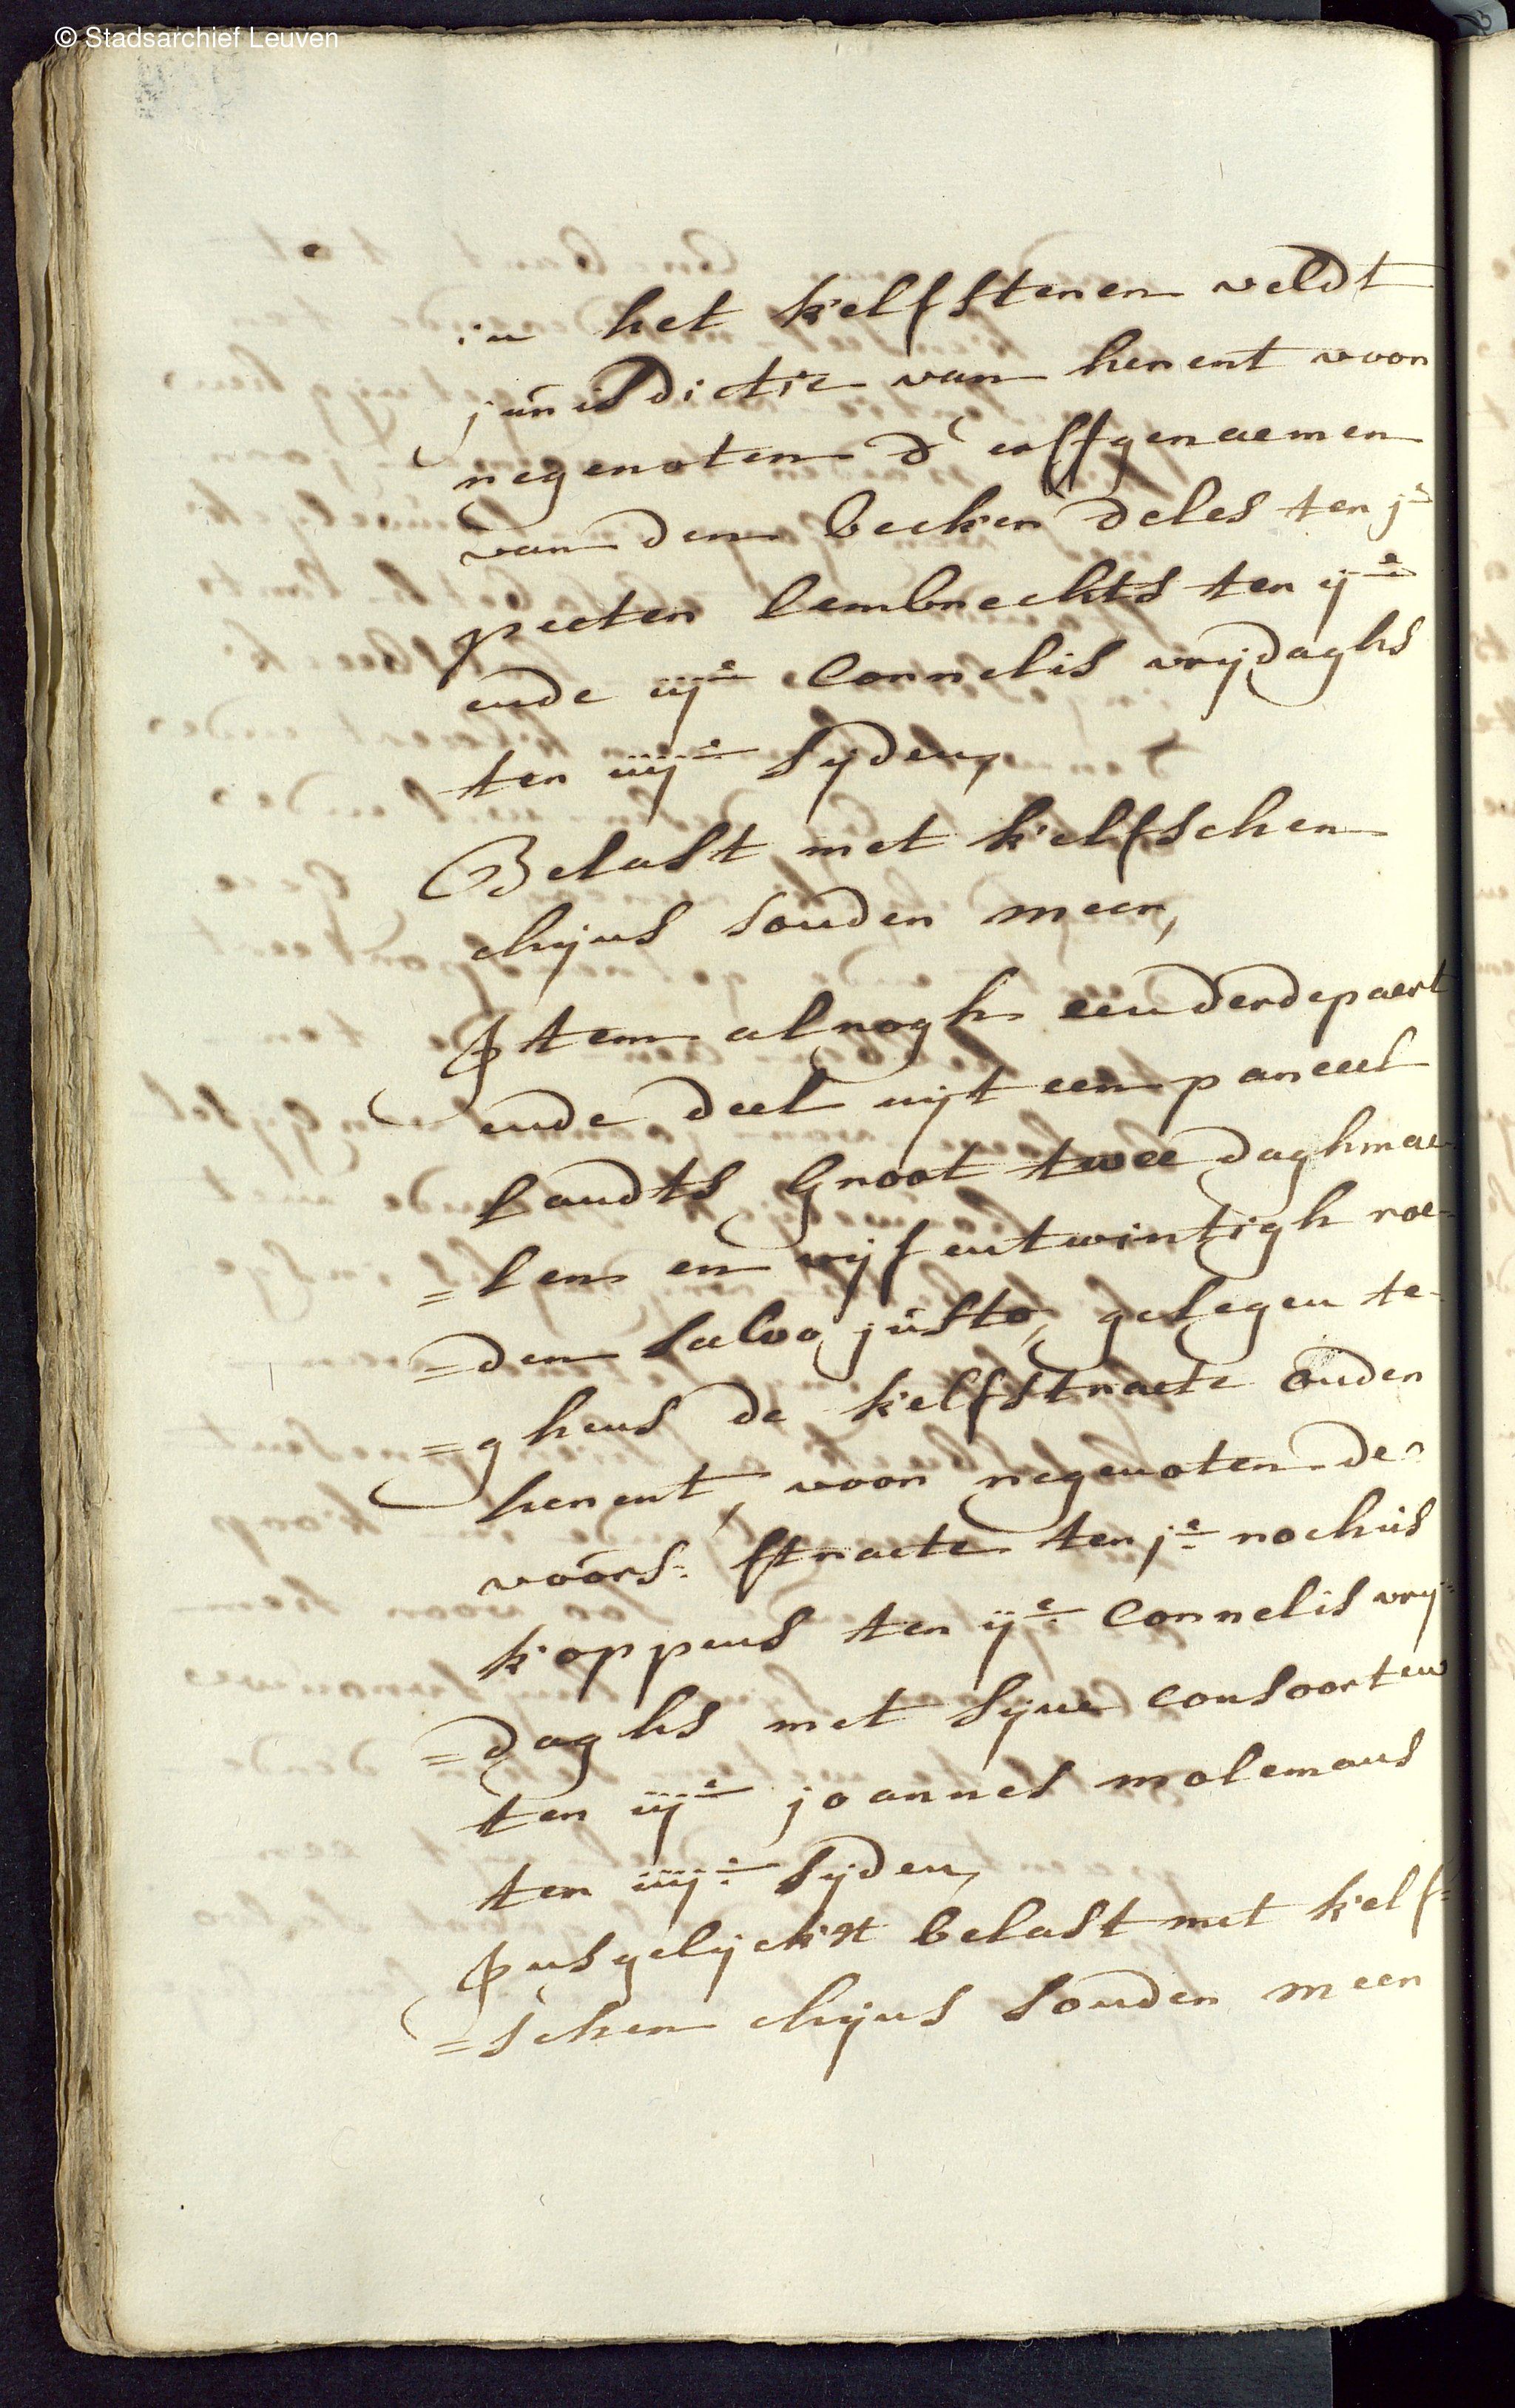 © Stadsarchief Leuven
in het kelfsteren veldt
jurisdictie van herent voor
regenoten d' erffgenaemen
van den becken deles ter je
peeter lembrechts ter ije
ende iije Cornelis vrijdaghs
ter iiije syden,
Belast met kelfschen
chijns sonder meer,
Item alnogh een derdepaert
ende deel uijt een parceel
landts groot twee daghmae
=len en vijfentwintigh roe-
=den salvo justo, gelegen te-
=ghens de kelfstraete onder
herent, voor regenoten de
voors. straete ter je rochus
koppens ter ije Cornelis vrij-
=daghs met syne consoorten
ter iije joannes molemans
ter iiije syden,
Insgelyckx belast met kelf=
=schen chijns sonder meer